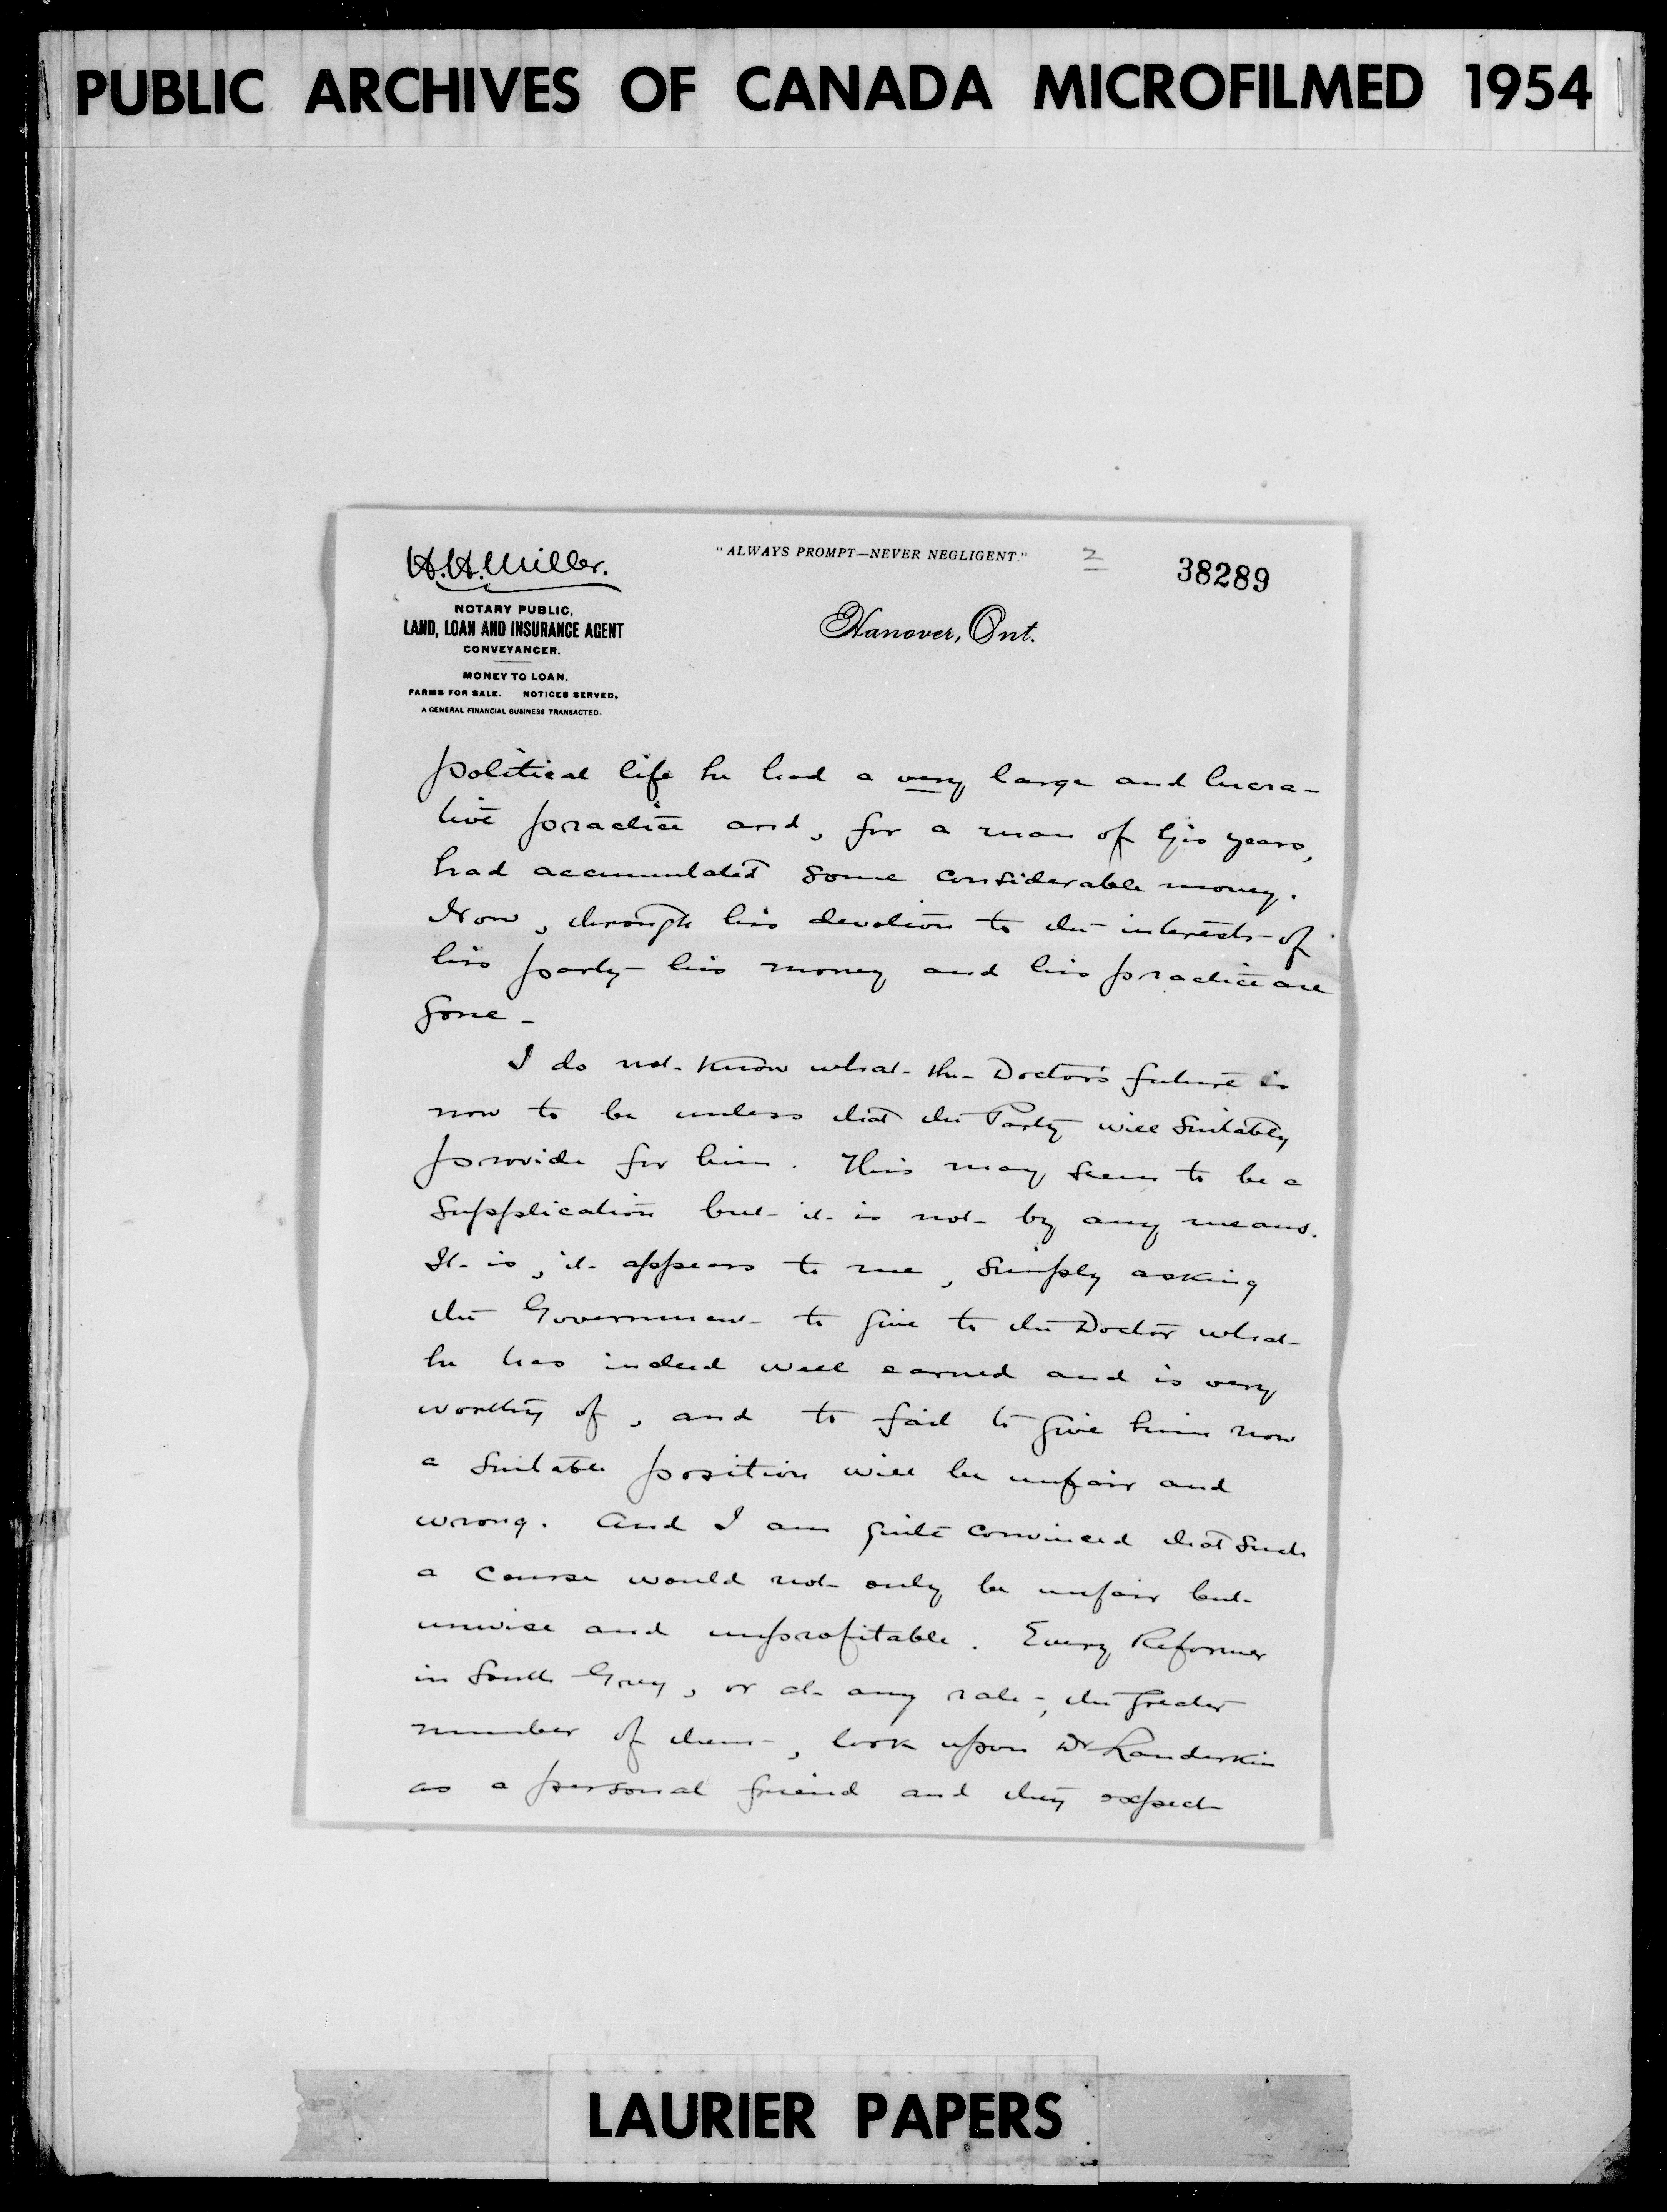 PUBLIC ARCHIVES OF CANADA MICROFILMED 1954
H.H. Miller.
NOTARY PUBLIC,
LAND, LOAN AND INSURANCE AGENT
CONVEYANCER.
MONEY TO LOAN.
FARMS FOR SALE. NOTICES SERVED,
A GENERAL FINANCIAL BUSINESS TRANSACTED.
"ALWAYS PROMPT—NEVER NEGLIGENT."
2
38289
Hanover, Ont.
political life he had a very large and lucra-
tive practice and, for a man of his years,
had accumulated some considerable money.
Now, through his devotion to the interests of
his party - his money and his practice are
gone -
I do not know what the Doctor's future is
now to be unless that the Party will suitably
provide for him. This may seem to be a
supplication but it is not by any means.
It is, it appears to me, simply asking
the Government to give to the Doctor what
he has indeed well earned and is very
worthy of, and to fail to give him now
a suitable position will be unfair and
wrong. And I am quite convinced that such
a course would not only be unfair but
unwise and unprofitable. Every Reformer
in South Grey, or at any rate, the greater
number of them, look upon Dr Landerkin
as a personal friend and they expect
LAURIER PAPERS